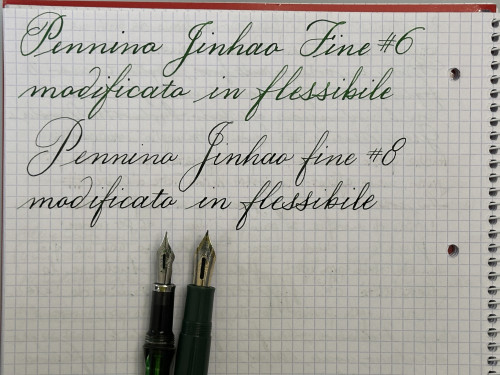 Pennino Jinhao Fine #6
modificato in flessibile
Pennino Jinhao fine #8
modificato in flessibile